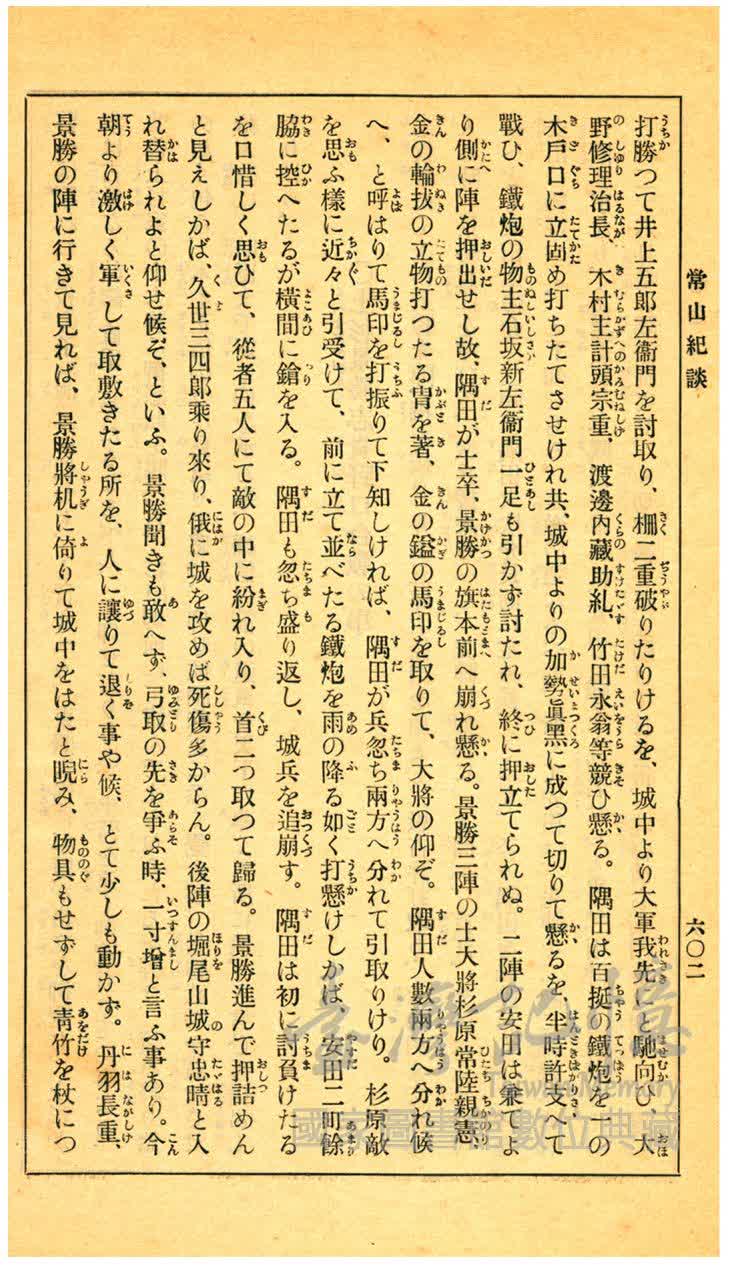 常山紀談
六〇二
打勝つて井上五郎左衞門を討取り、柵二重破りたりけるを、城中より大軍我先にと馳向ひ、大
野修理治長、木村主計頭宗重、渡邊內藏助糺、竹田永翁等競ひ懸る。隅田は百挺の鐵炮を一の
木戶口に立固め打ちたてさせけれ共、城中よりの加勢眞黑に成つて切りて懸るを、半時許支へて
戰ひ、鐵炮の物主石坂新左衞門一足も引かず討たれ、終に押立てられぬ。二陣の安田は兼てよ
り側に陣を押出せし故、隅田が士卒、景勝の旗本前へ崩れ懸る。景勝三陣の士大將杉原常陸親憲、
金の輪拔の立物打つたる冑を著、金の鎰の馬印を取りて、大將の仰ぞ。隅田人數兩方へ分れ候
へ、と呼はりて馬印を打振りて下知しければ、隅田が兵忽ち兩方へ分れて引取りけり。杉原敵
を思ふ樣に近々と引受けて、前に立て並べたる鐵炮を雨の降る如く打懸けしかば、安田二町餘
脇に控へたるが橫間に鎗を入る。隅田も忽ち盛り返し、城兵を追崩す。隅田は初に討負けたる
を口惜しく思ひて、從者五人にて敵の中に紛れ入り、首二つ取つて歸る。景勝進んで押詰めん
と見えしかば、久世三四郎乘り來り、俄に城を攻めば死傷多からん。後陣の堀尾山城守忠晴と入
れ替られよと仰せ候ぞ、といふ。景勝聞きも敢へず、弓取の先を爭ふ時、一寸增と言ふ事あり。今
朝より激しく軍して取敷きたる所を、人に讓りて退く事や候、とて少しも動かず。丹羽長重、
景勝の陣に行きて見れば、景勝將机に倚りて城中をはたと睨み、物具もせずして靑竹を杖につ
國家圖書館數位典藏